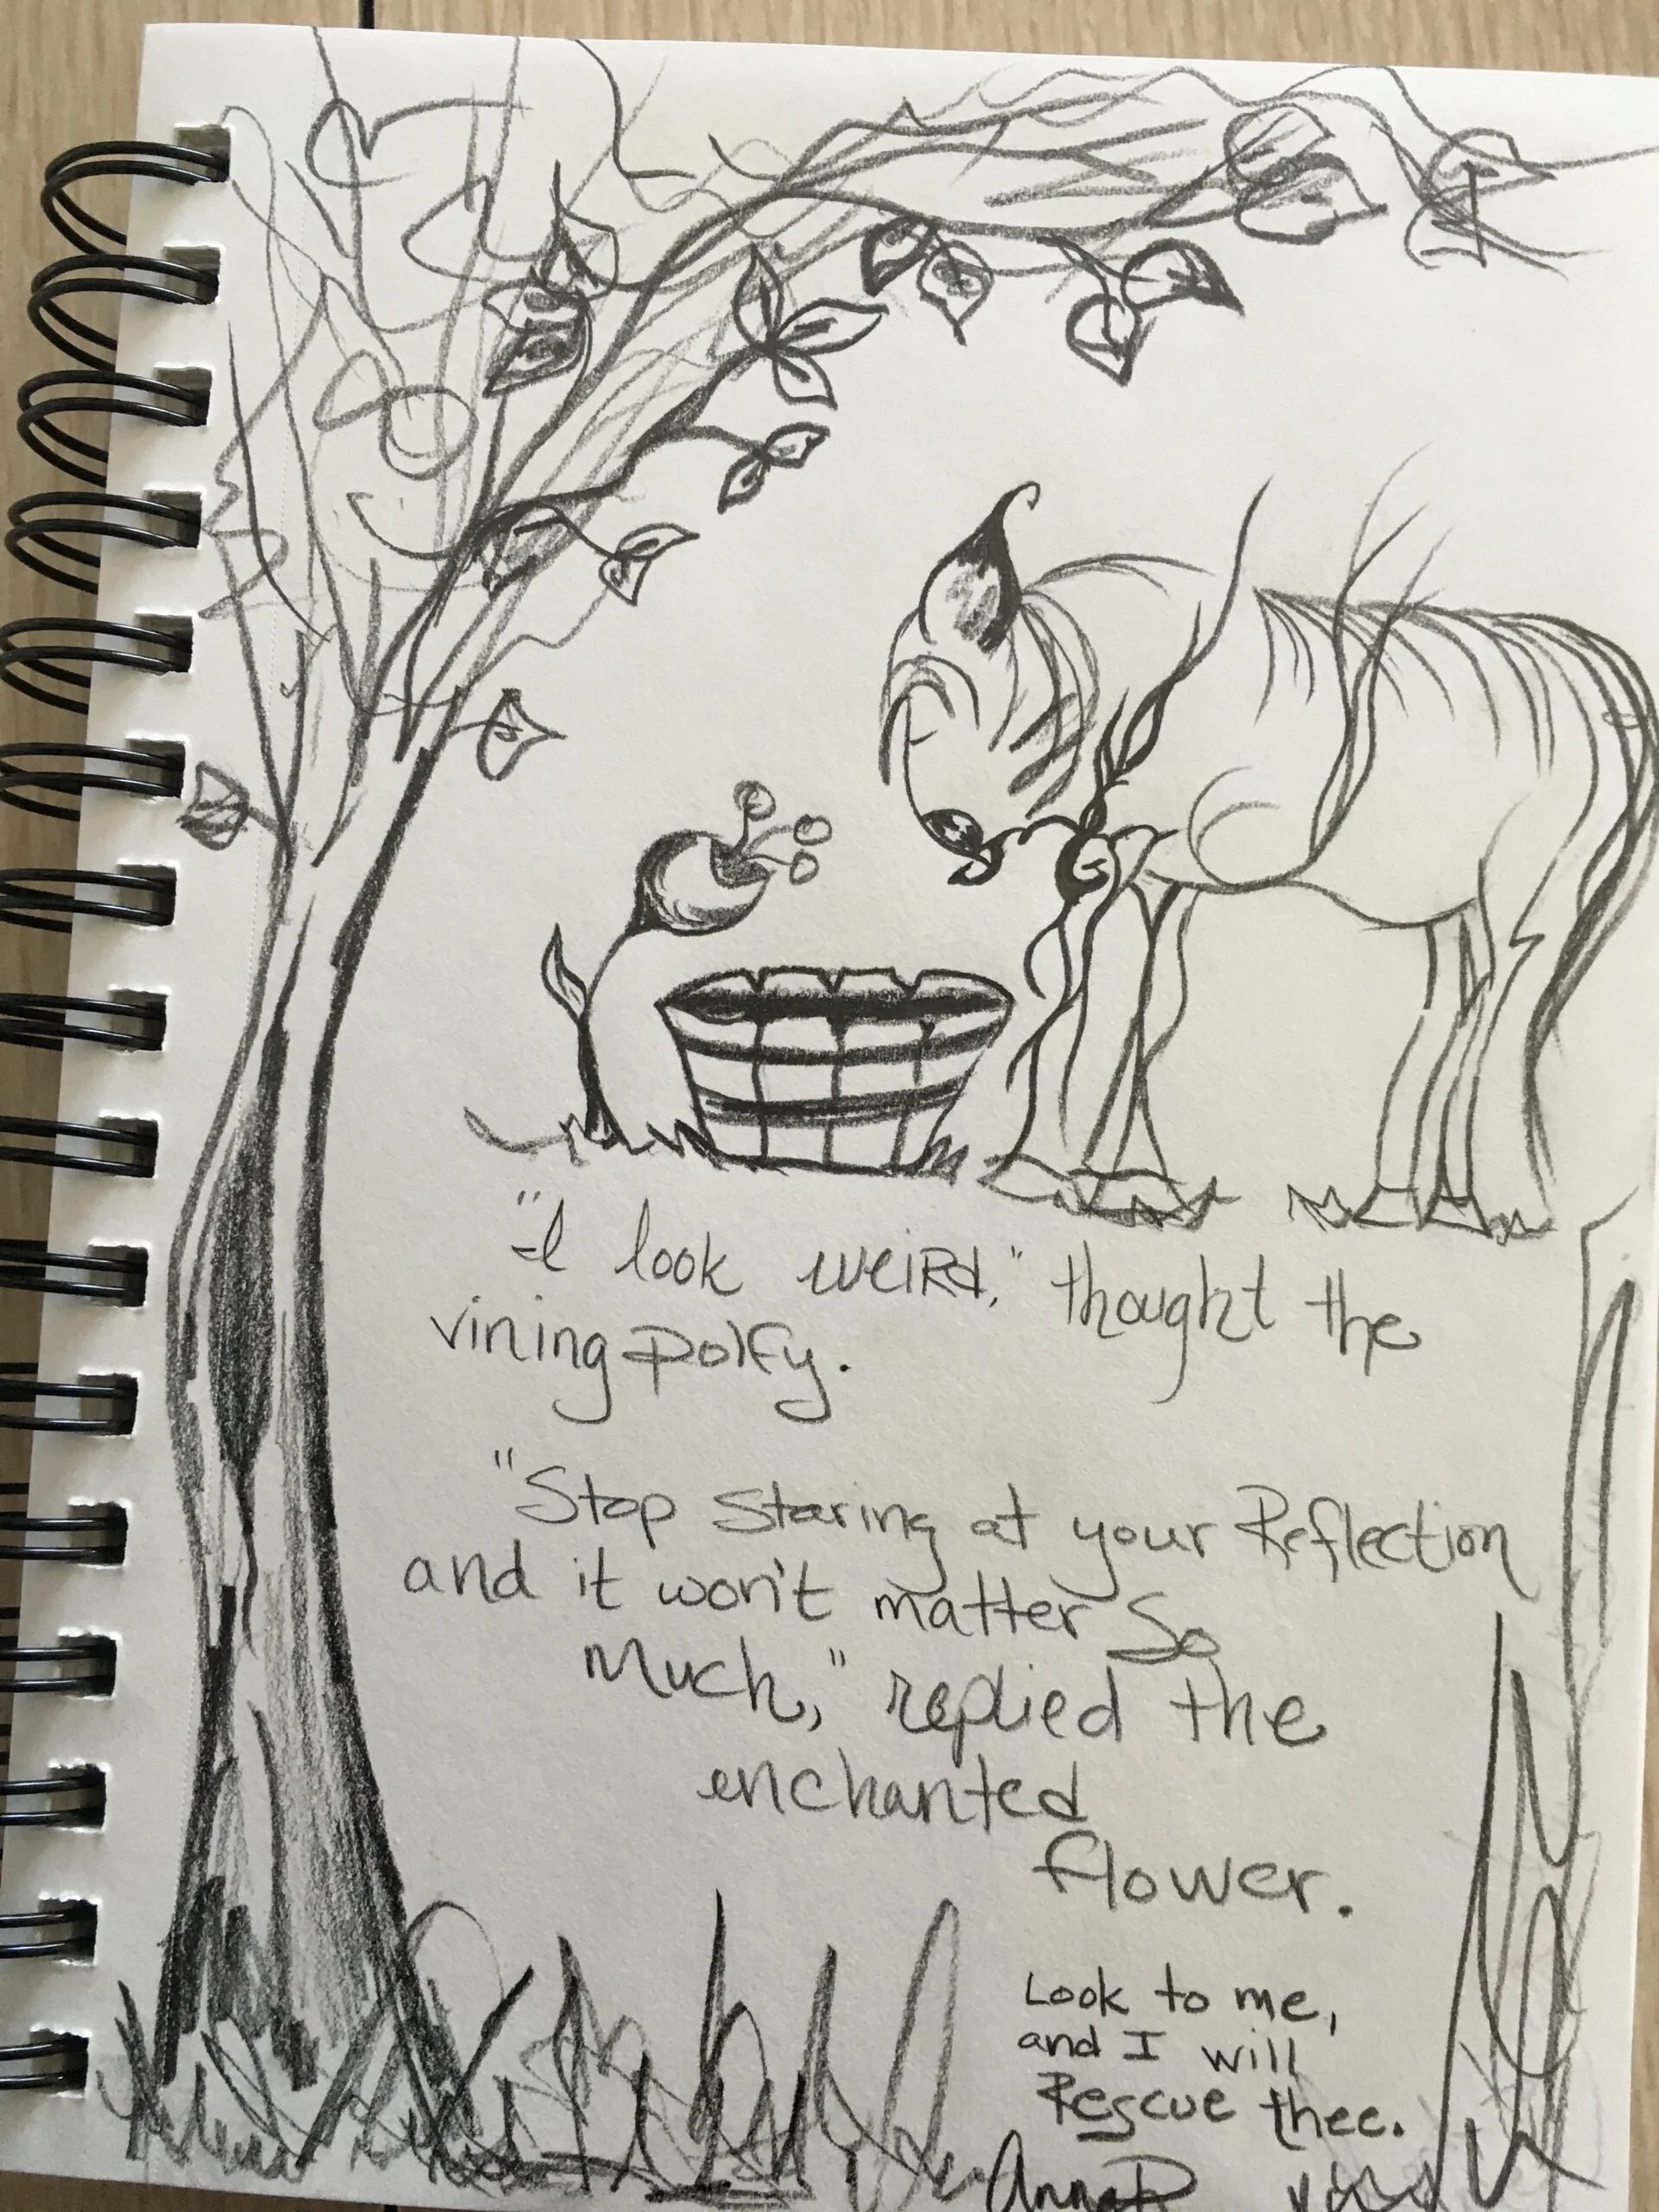 "I look weird," thought the
vining polfy.
"Stop staring at your Reflection
and it won't matter So
Much," replied the
enchanted
flower.
Look to me,
and I will
Rescue thee.